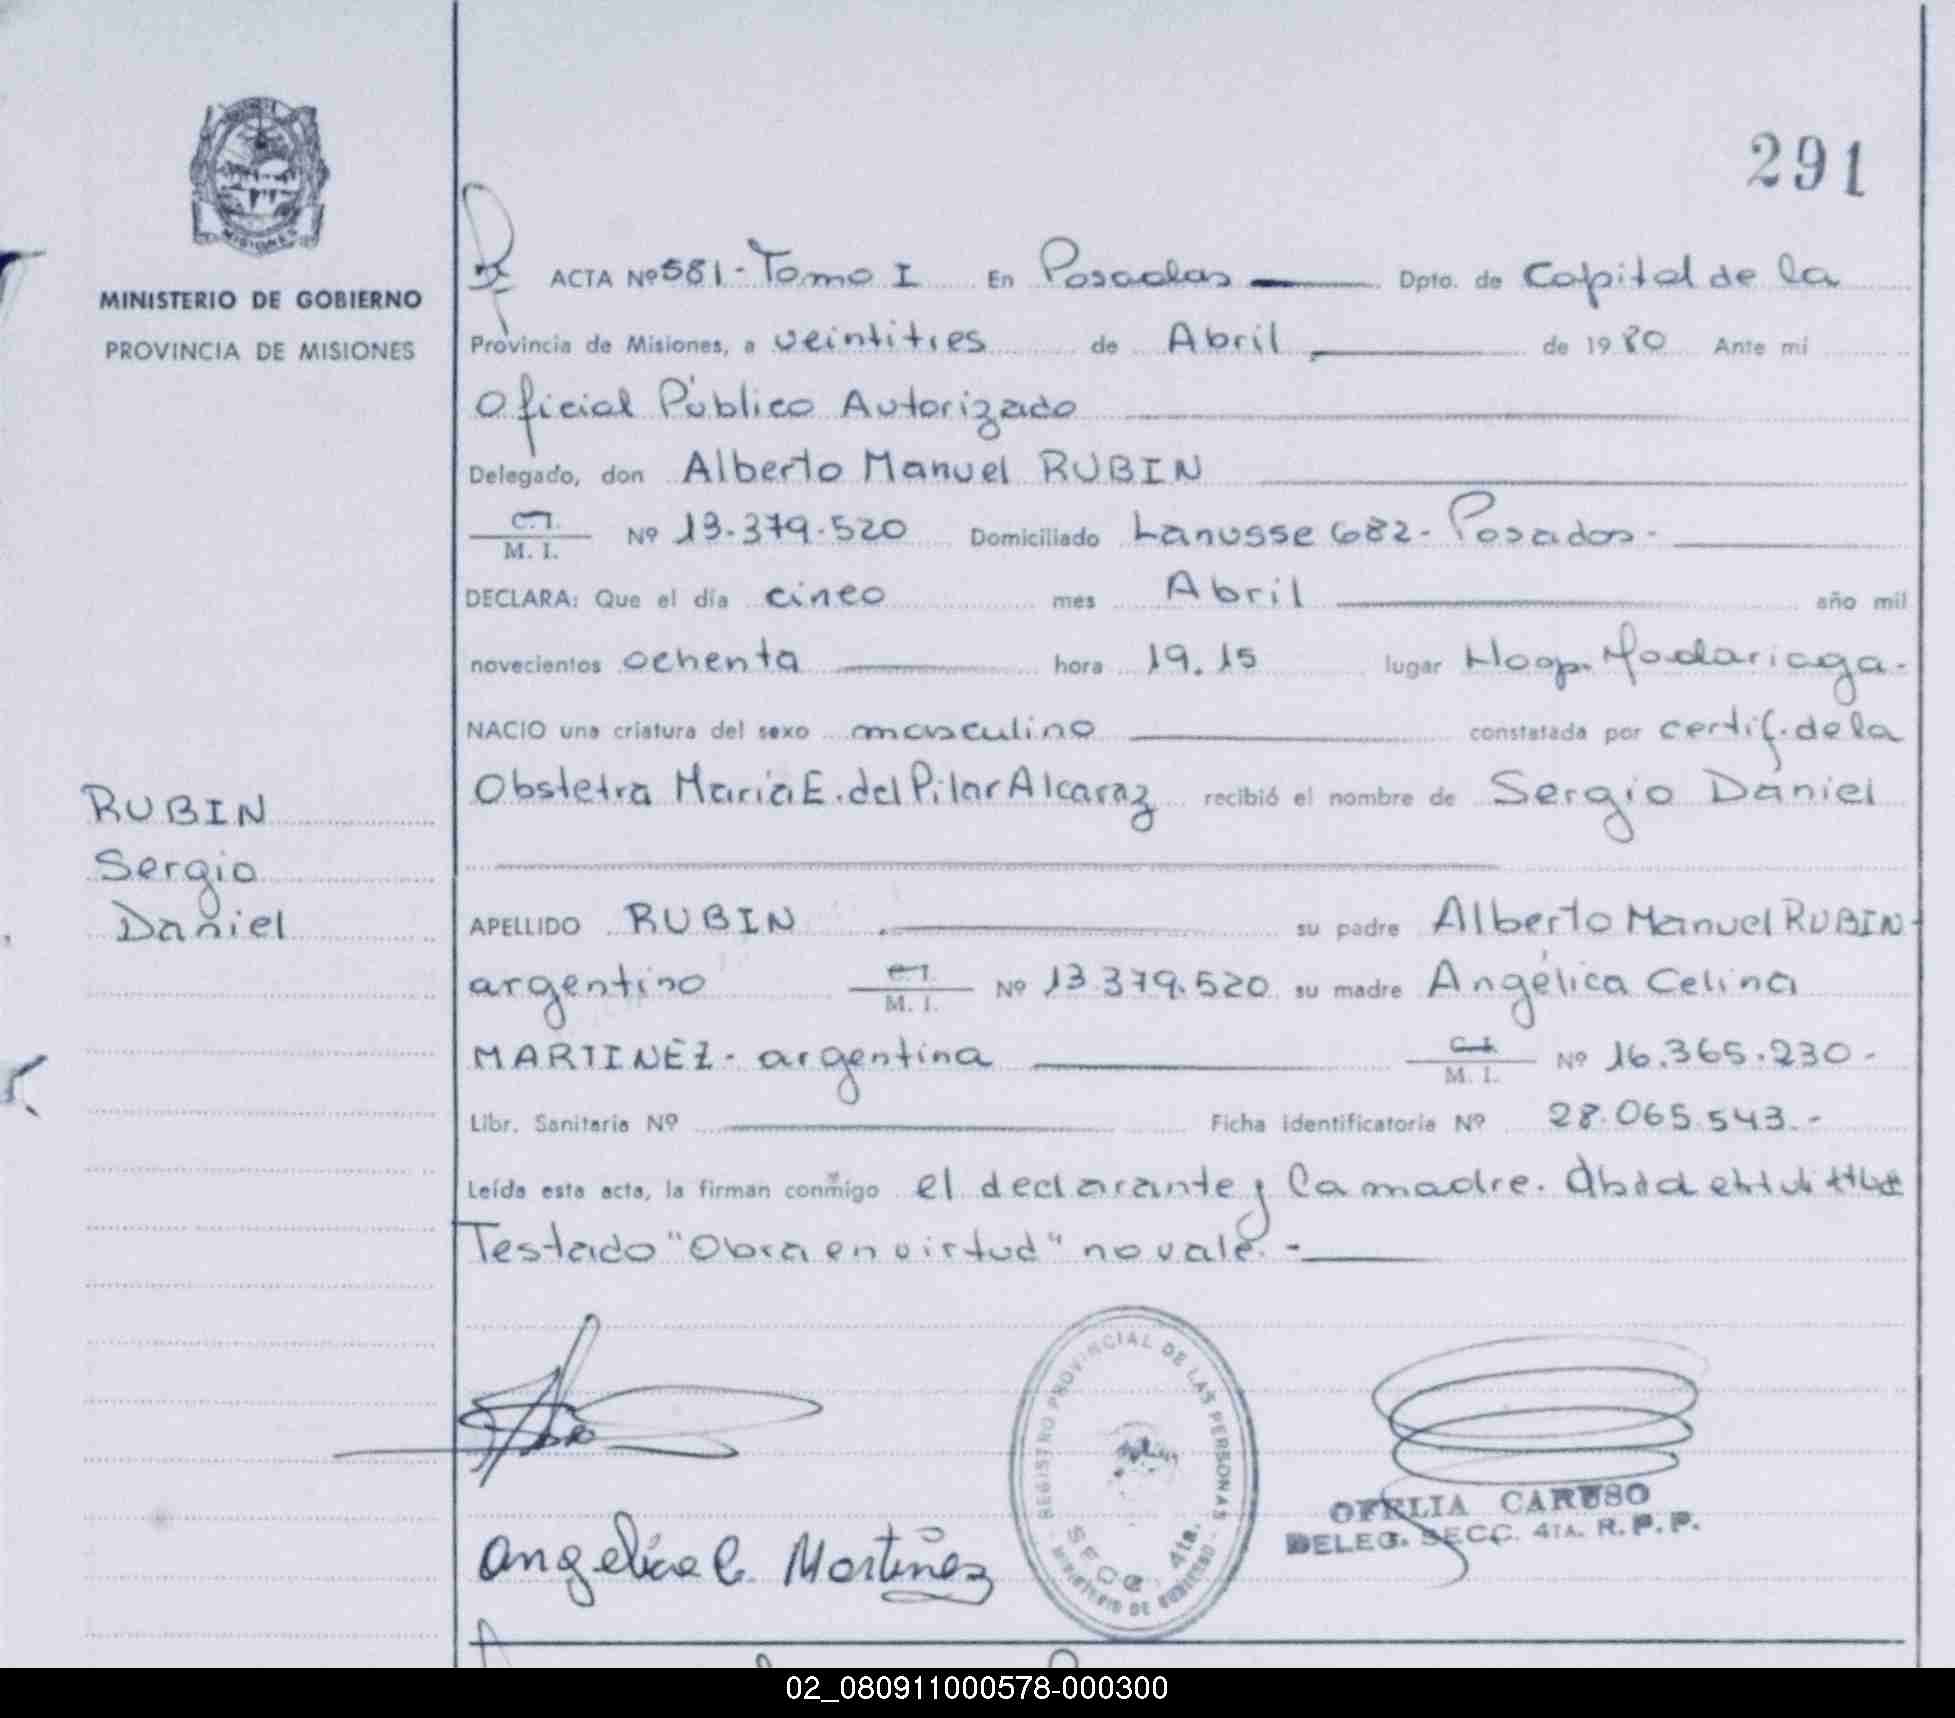 291
MINISTERIO DE GOBIERNO
PROVINCIA DE MISIONES
ACTA Nº 581 - Tomo I En Posadas Dpto. de Capital de la
Provincia de Misiones, a veintitres de Abril de 1980 Ante mi
Oficial Público Autorizado
Delegado, don Alberto Manuel RUBIN
C.I.
M. I. Nº 13.379.520 Domiciliado Lanusse 682 - Posadas -
DECLARA: Que el día cinco mes Abril año mil
novecientos ochenta hora 19.15 lugar Hosp. Madariaga.
NACIO una criatura del sexo masculino constatada por certif. de la
Obstetra María E. del Pilar Alcaraz recibió el nombre de Sergio Daniel
RUBIN
Sergio
Daniel
APELLIDO RUBIN su padre Alberto Manuel RUBIN -
argentino C.I.
M. I. Nº 13.379.520 su madre Angélica Celina
MARTINEZ - argentina C.I.
M. I. Nº 16.365.230 -
Libr. Sanitaria Nº Ficha identificatoria Nº 28.065.543.-
Leída esta acta, la firman conmigo el declarante y la madre.
Testado "Obra en virtud" no vale. -
Angelica C. Martinez
REGISTRO PROVINCIAL DE LAS PERSONAS - MINISTERIO DE GOBIERNO -
SECC. 4ta.
OFELIA CARUSO
DELEG. SECC. 4TA. R. P. P.
02_080911000578-000300